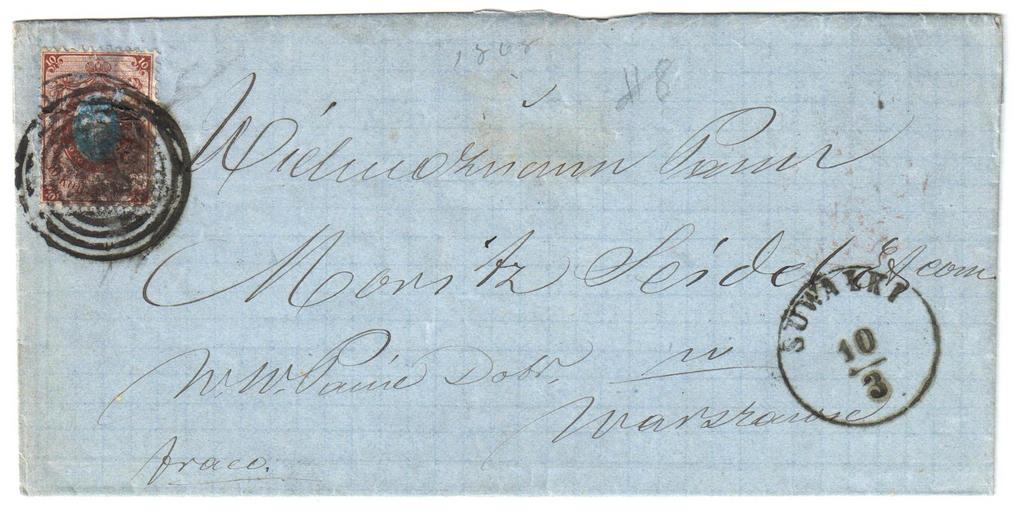 1868
#8
10 10
Wielmożnemu Panu
Moritz Seidel & Com
W. W. Panie Dobr. w
Warszawie
franco.
SUWAŁKI
10/3